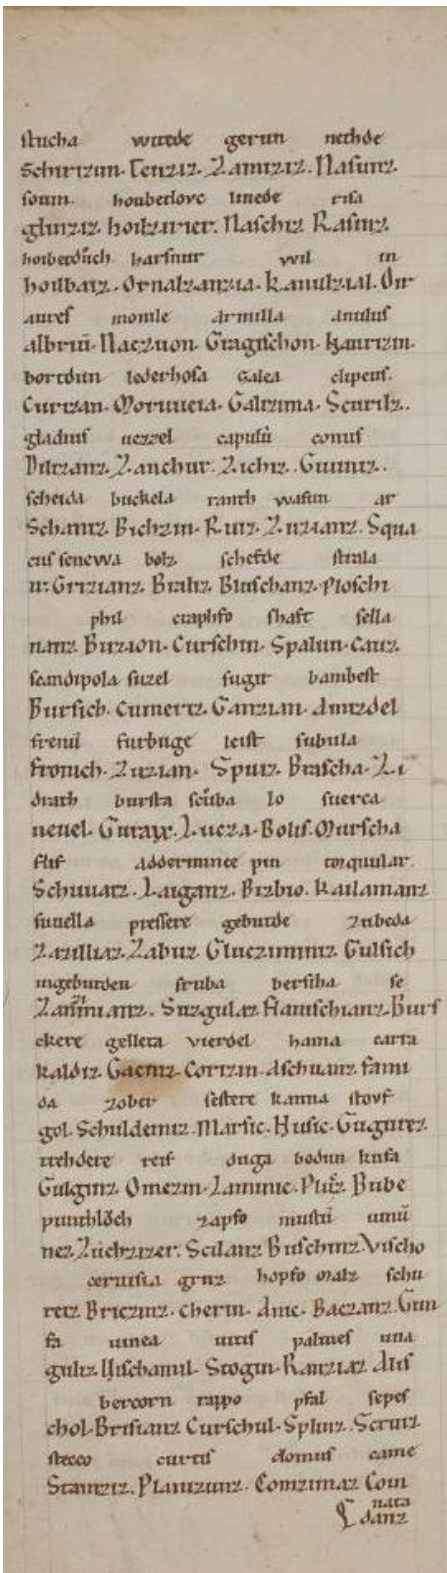 stucha wurde gerun nethde
Schirizun. Tenziz. Zamiziz. Nasunz.
soum. houbetlove linede risa
glinziz. hoilzirier. Naschiz Rasinz.
hoibetduch harsnur wil in
hoilbaiz. Ornalzanzia. kanulzial. Oir
aures monile armilla anulus
albriu. Naczuon. Gragischon. kaurizin.
bortdun lederhosa galea clipeus.
Curizan. Moruueia. Galizima. Scurilz.
gladius uezzel capulu conus
Dilizanz. Zanchur. Zichiz. Guuniz.
scheida buckela ranth wafun ar
Schaniz. Bichzin. Ruiz. Zirzianz. Squa
cus senewa bolz schefde strala
Grizianz. Bizliz. Buschanz. Ploschi
phil craphfo shaft sella
nanz. Buzion. Curschin. Spalun. Cauz.
scandipola suzel sugir bambest
Bursich. Cumeriz. Ganzian. Amizdel
frenu furbuge leist subula
fronich. Zuzian. Spuiz. Brascha. Zi
drath bursta scuba lo suerca
neuel. Guraw. Lucza. Bolis. Murscha
flis adderminee pin torquular.
Schuuaiz. Laiganz. Bizbio. kailamanz
suuella pressere geburde zubeda
Zazilliaz. Zabuz. Gluczuminiz. Gulsich
ingeburden struba bersiha se
Zamianz. Suzgulaz. flanischianz. Burs
ckere gelleta vierdel hama carra
kaldiz. Gaeniz. Corizin. Aschuanz. fami
da zober sestere kanna stouf
gol. Schuldemiz. Marsic. Husic. Gugurez.
trehdere reif duga bodun kufa
Gulginz. Omezin. Zaminic. Puez. Bube
punthloch zapfo mustu uinu
nez. Zuchzizer. Scilanz Buschinz. Vischo
ceruisia gruz hopfo malz schu
reiz. Briczinz. cherin. Amc. Baczanz. Gun
fa uinea uitis palmes uua
guliz. Uischamil. Scogin. Ranziaz Alis
bercorn rappo pfal sepes
chol. Brisianz Curschul. Spliniz. Scruiz
stecco curtis domus came
Stainziz. Planizunz. Comzimaz Coin
nata
danz